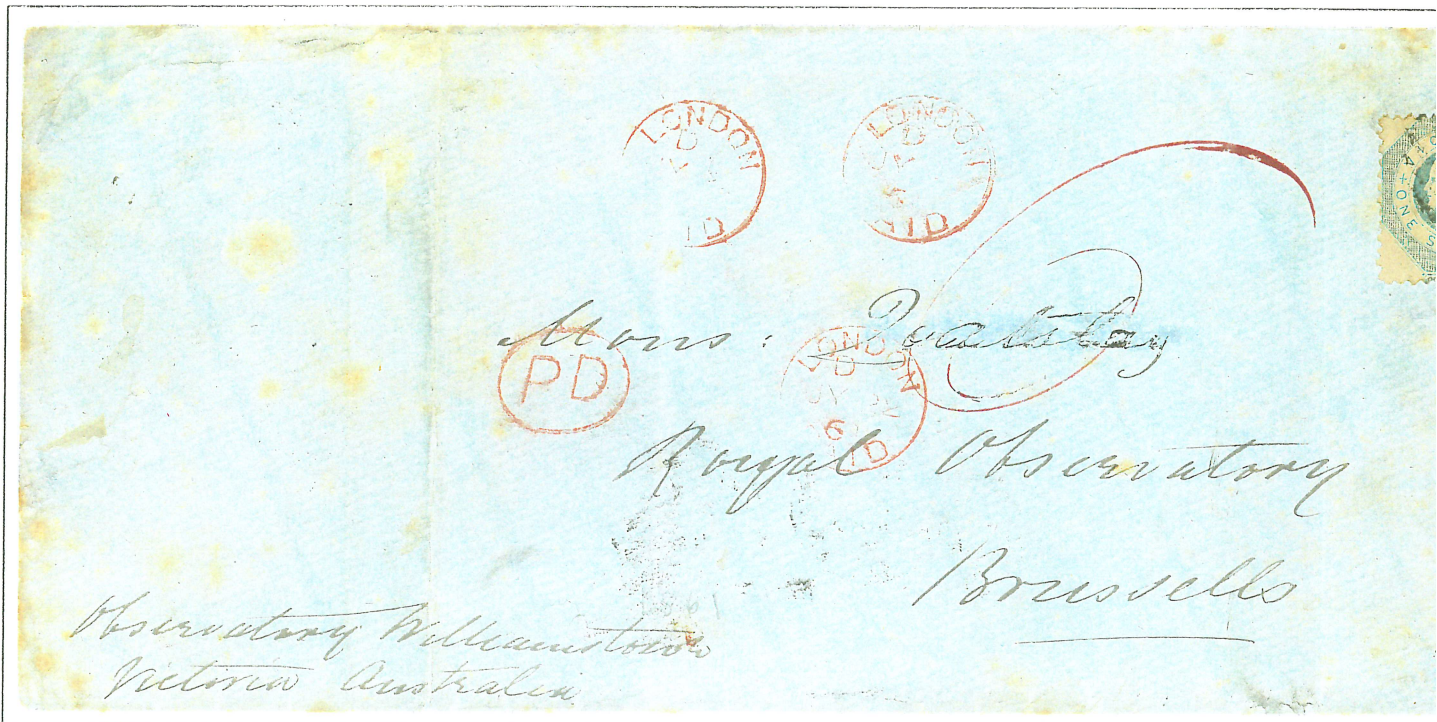 LONDON
PAID
LONDON
PAID
ONE
Mons:
PD
LONDON
PAID
Royal Observatory
Brussells
Observatory Williamstown
Victoria Australia